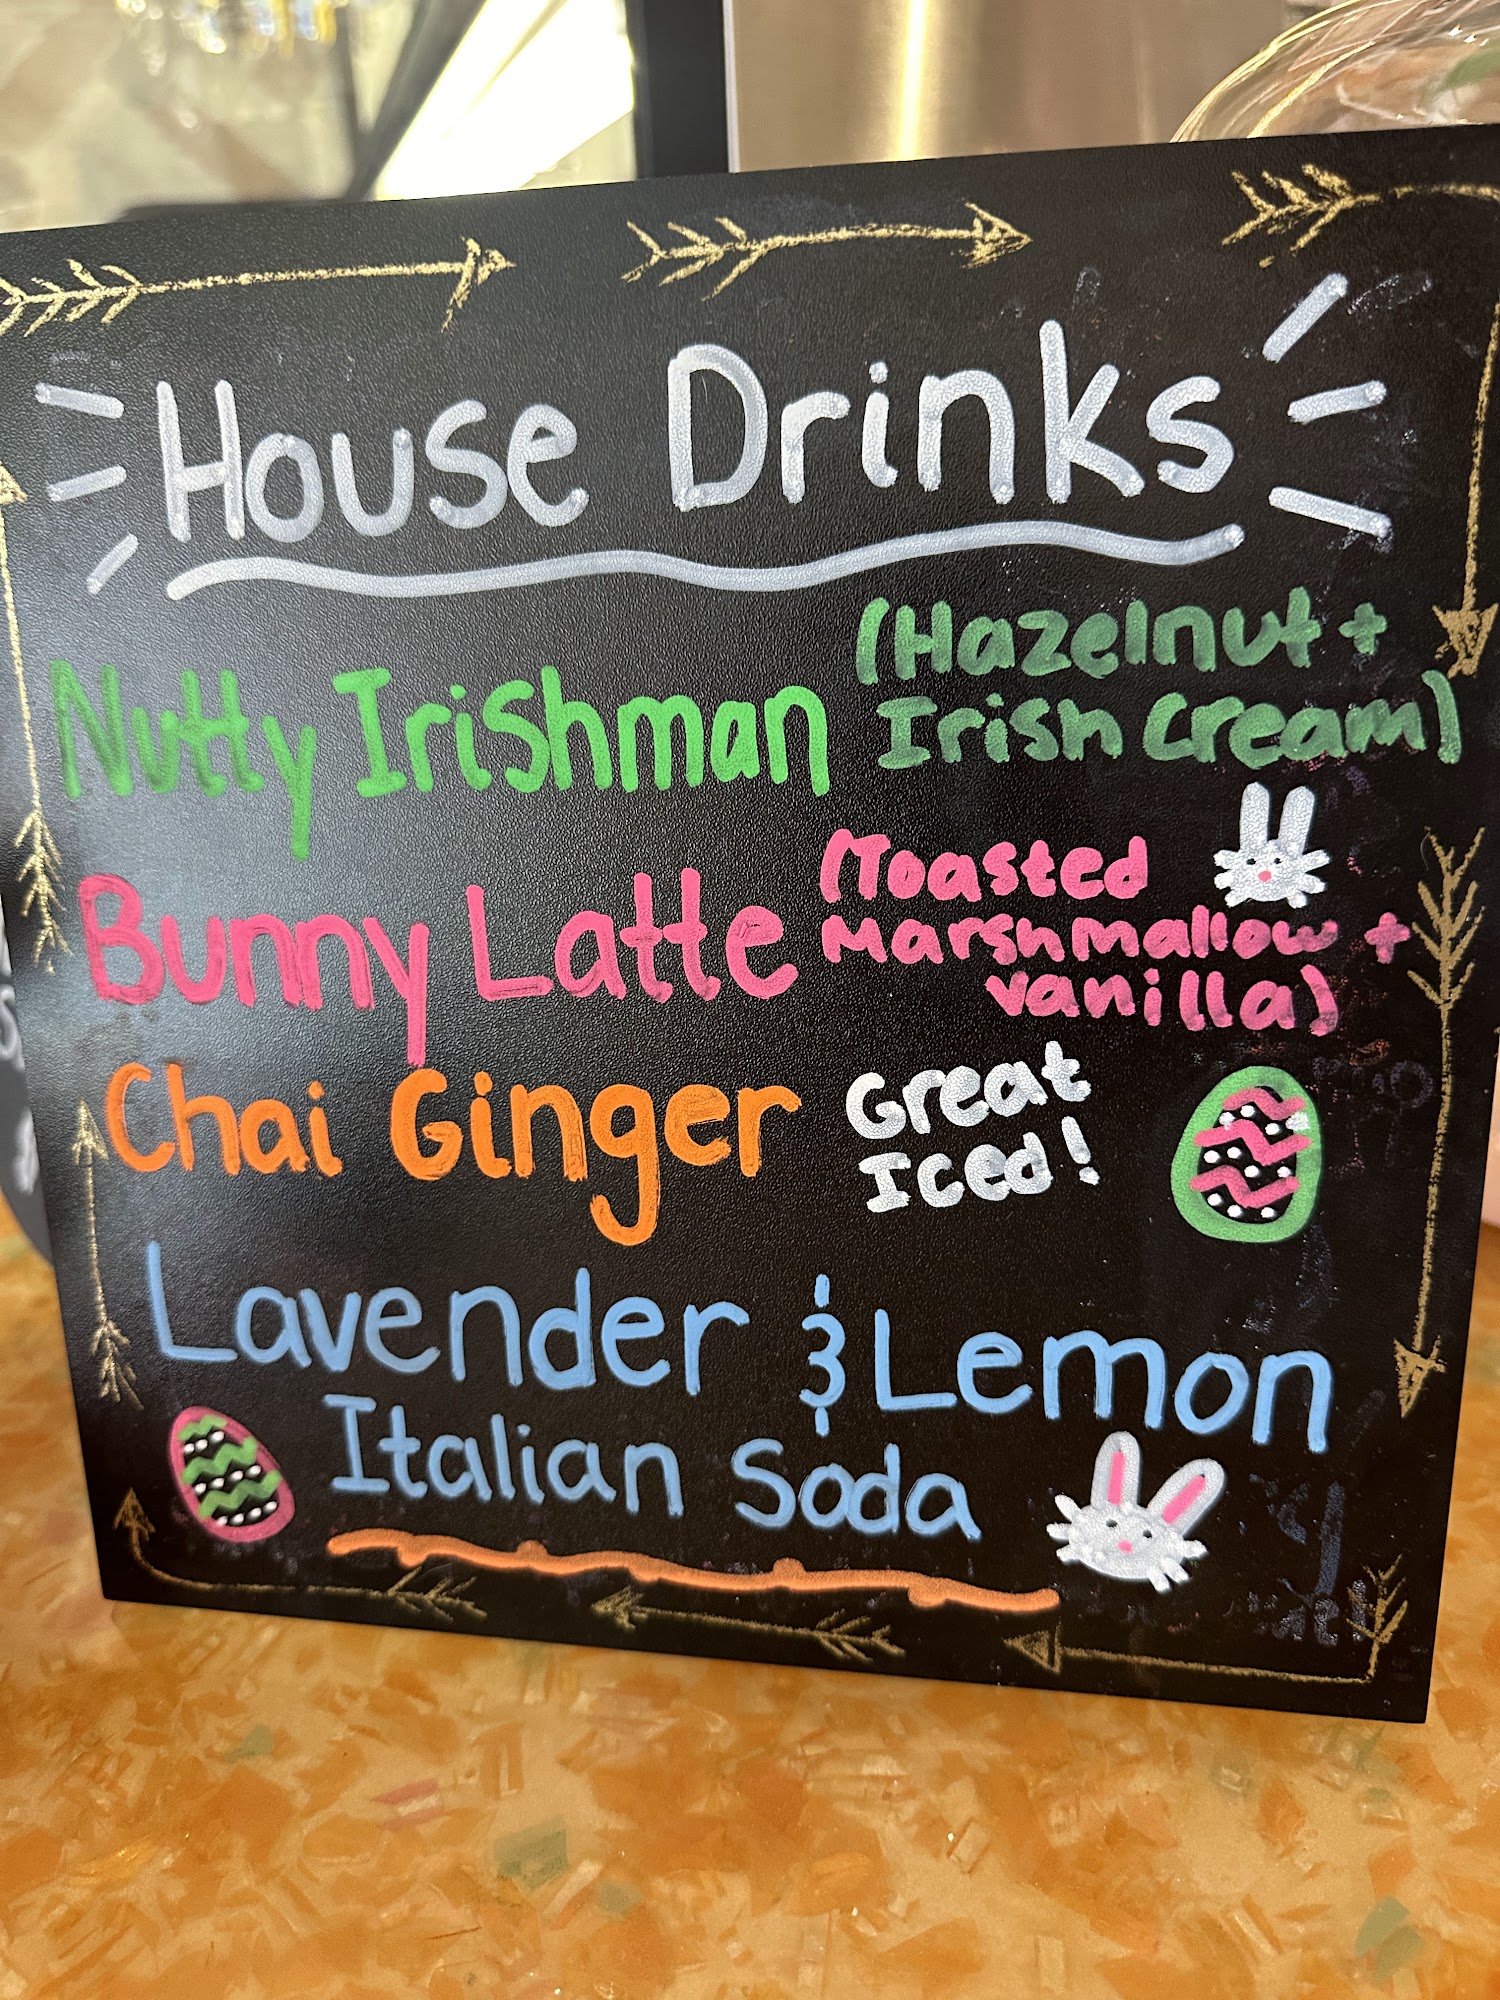 House Drinks
Nutty Irishman (Hazelnut +
Irish Cream)
Bunny Latte (Toasted
Marshmallow +
vanilla)
Chai Ginger Great
Iced!
Lavender & Lemon
Italian Soda